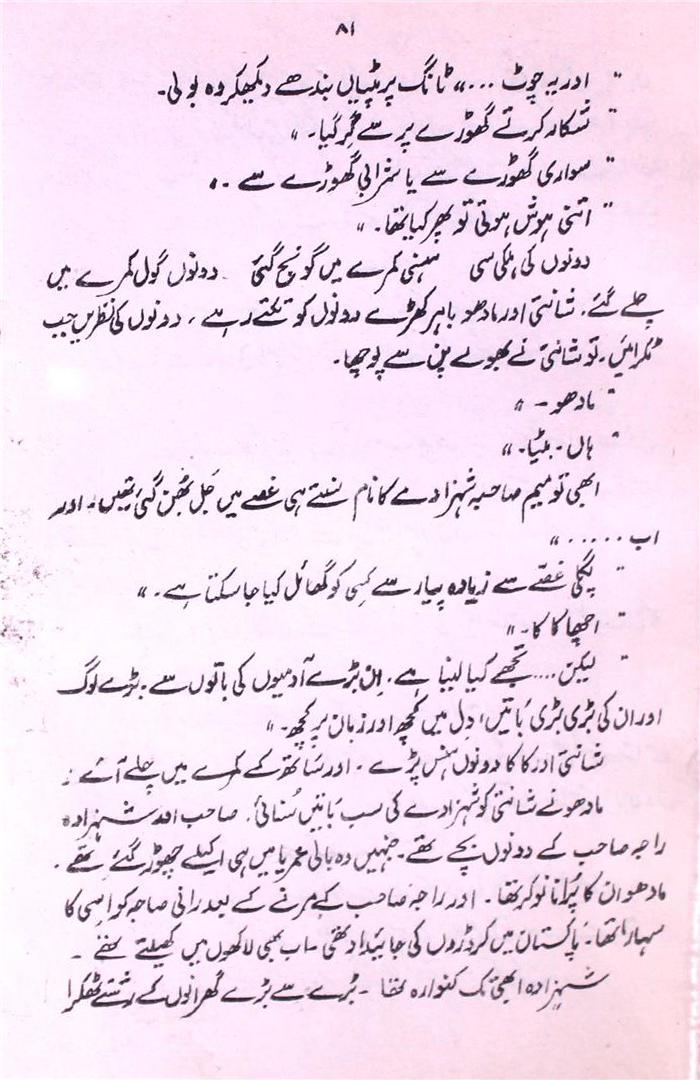 ۸۱
" اور یہ چوٹ ...." ٹانگ پر پٹیاں بندھے دیکھکر وہ بولی۔
" شکار کرتے گھوڑے پر سے گر گیا۔ "
" سواری گھوڑے سے یا شرابی گھوڑے سے ۔"
" اتنی ہوش ہوتی تو پھر کیا تھا۔ "
دونوں کی ہلکی سی ہنسی کمرے میں گونج گئی ۔ دونوں گول کمرے میں
چلے گئے۔ شانتی اور مادھو باہر کھڑے دونوں کو تکتے رہے ، دونوں کی نظریں جب
ٹکرائیں ، تو شانتی نے بھولے پن سے پوچھا۔
" مادھو ۔ "
" ہاں ۔ بٹیا۔ "
ابھی تو میم صاحبہ شہزادے کا نام سنتے ہی غصے میں جل بھن گئی تھیں۔ اور
اب ...... "
" پگلی غصّے سے زیادہ پیار سے کسی کو گھائل کیا جا سکتا ہے۔ "
" اچھا کاکا۔ "
" لیکن .... تجھے کیا لینا ہے۔ ان بڑے آدمیوں کی باتوں سے۔ بڑے لوگ
اور ان کی بڑی بڑی باتیں، دل میں کچھ اور زبان پر کچھ۔ "
شانتی اور کاکا دونوں ہنس پڑے ۔ اور ساتھ کے کمرے میں چلے آئے :
مادھو نے شانتی کو شہزادے کی سب باتیں سُنائی۔ صاحب اور شہزادہ
راجہ صاحب کے دونوں بچے تھے۔ جنہیں وہ بالی عمریا میں ہی اکیلے چھوڑ گئے تھے ۔
مادھو ان کا پُرانا نوکر تھا ۔ اور راجہ صاحب کے مرنے کے بعد رانی صاحبہ کو اسی کا
سہارا تھا۔ پاکستان میں کروڑوں کی جائیداد تھی ۔ اب بھی لاکھوں میں کھیلتے تھے ۔
شہزادہ ابھی تک کنوارہ تھا ۔ بڑے سے بڑے گھرانوں کے رشتے ٹھکرا